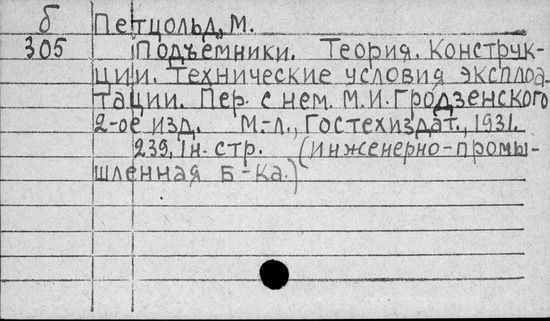 б Петцольд, М.
305 Подъемники. Теория. Конструк-
ции. Технические условия эксплоа-
тации. Пер. с нем. М.И. Гродзенского
2-ое изд. М.-л., Гостехиздат., 1931.
239, 1н. стр. (инженерно-промы-
шленная Б-ка.)